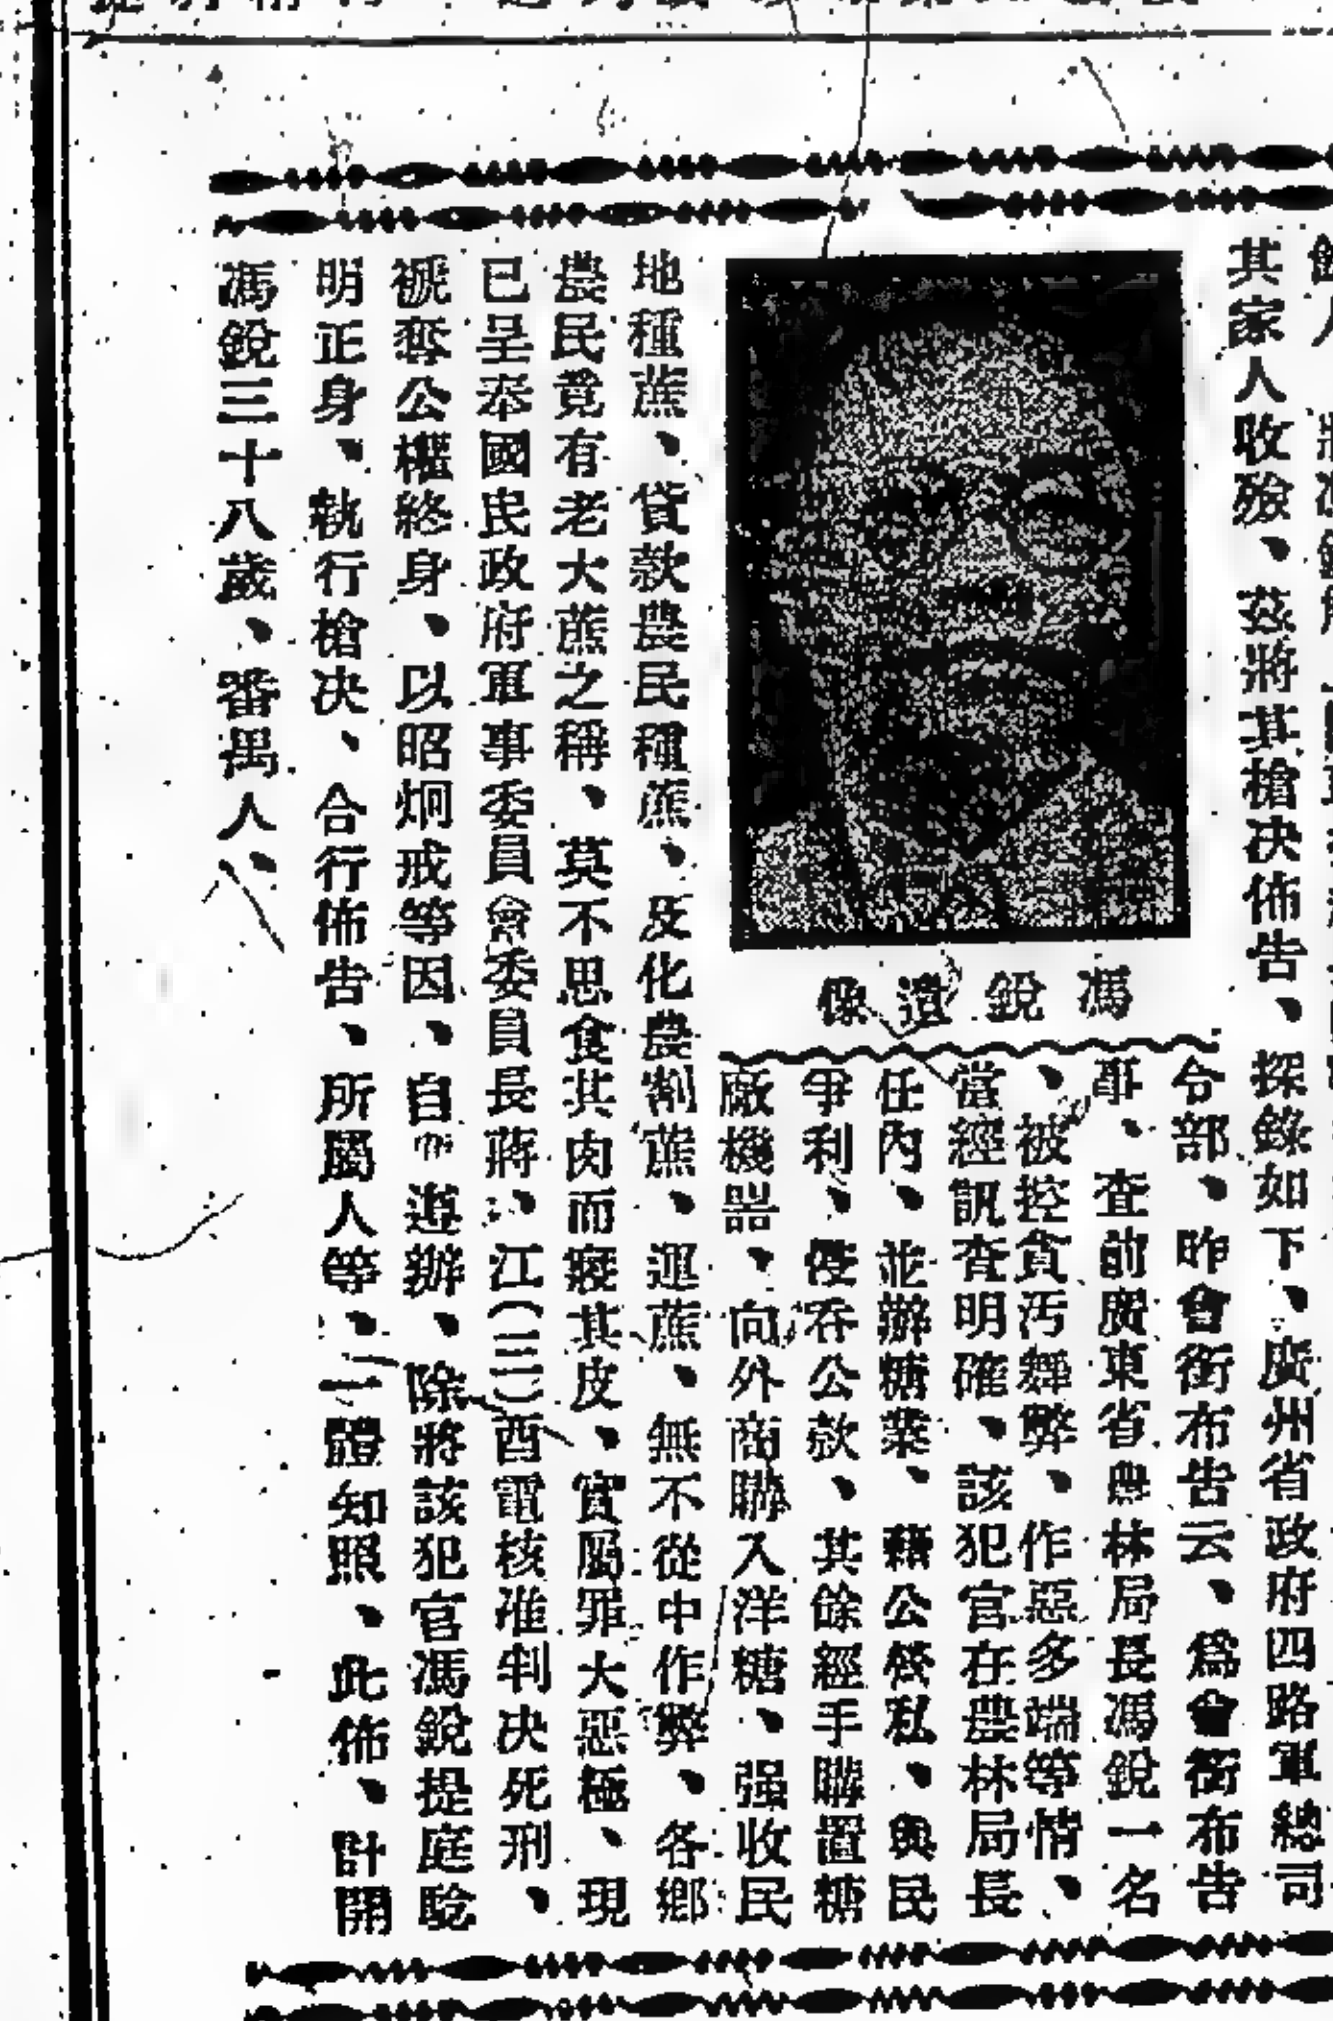 其家人收殮、茲將其槍决佈告、探錄如下、廣州省政府四路軍總司
令部、昨會銜布告云、爲會銜布告
事、查前廣東省農林局長馮銳一名
、被控貪汚舞弊、作惡多端等情、
當經訊查明確、該犯官在農林局長
任內、並辦糖業、藉公營私、與民
爭利、侵呑公款、其餘經手購置糖
廠機器、向外商購入洋糖、强收民
馮銳遺像
地種蔗、貸款農民種蔗、及化農割蔗、運蔗、無不從中作弊、各鄉
農民竟有老大蔗之稱、莫不思食其肉而寢其皮、實屬罪大惡極、現
已呈奉國民政府軍事委員會委員長蔣、江(三)酉電核准判决死刑、
褫奪公權終身、以昭炯戒等因、自遵辦、除將該犯官馮銳提庭騐
明正身、執行槍决、合行佈告、所屬人等、一體知照、此佈、計開
馮銳三十八歲、番禺人、